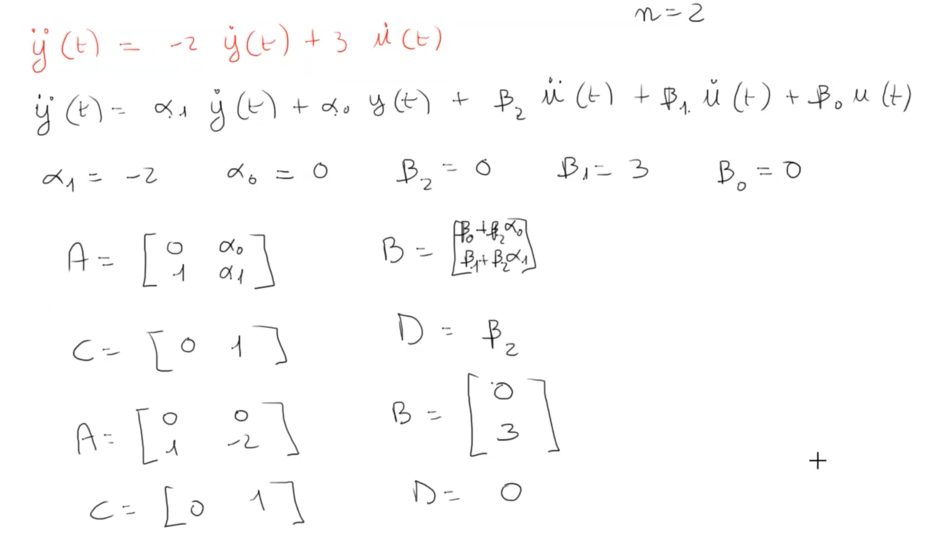 n = 2
ÿ(t) = -2 ẏ(t) + 3 u̇(t)
ÿ(t) = α₁ ẏ(t) + α₀ y(t) + β₂ ü(t) + β₁ u̇(t) + β₀ u(t)
α₁ = -2 α₀ = 0 β₂ = 0 β₁ = 3 β₀ = 0
A = [0 α₀; 1 α₁] B = [β₀+β₂α₀; β₁+β₂α₁]
C = [0 1] D = β₂
A = [0 0; 1 -2] B = [0; 3]
C = [0 1] D = 0